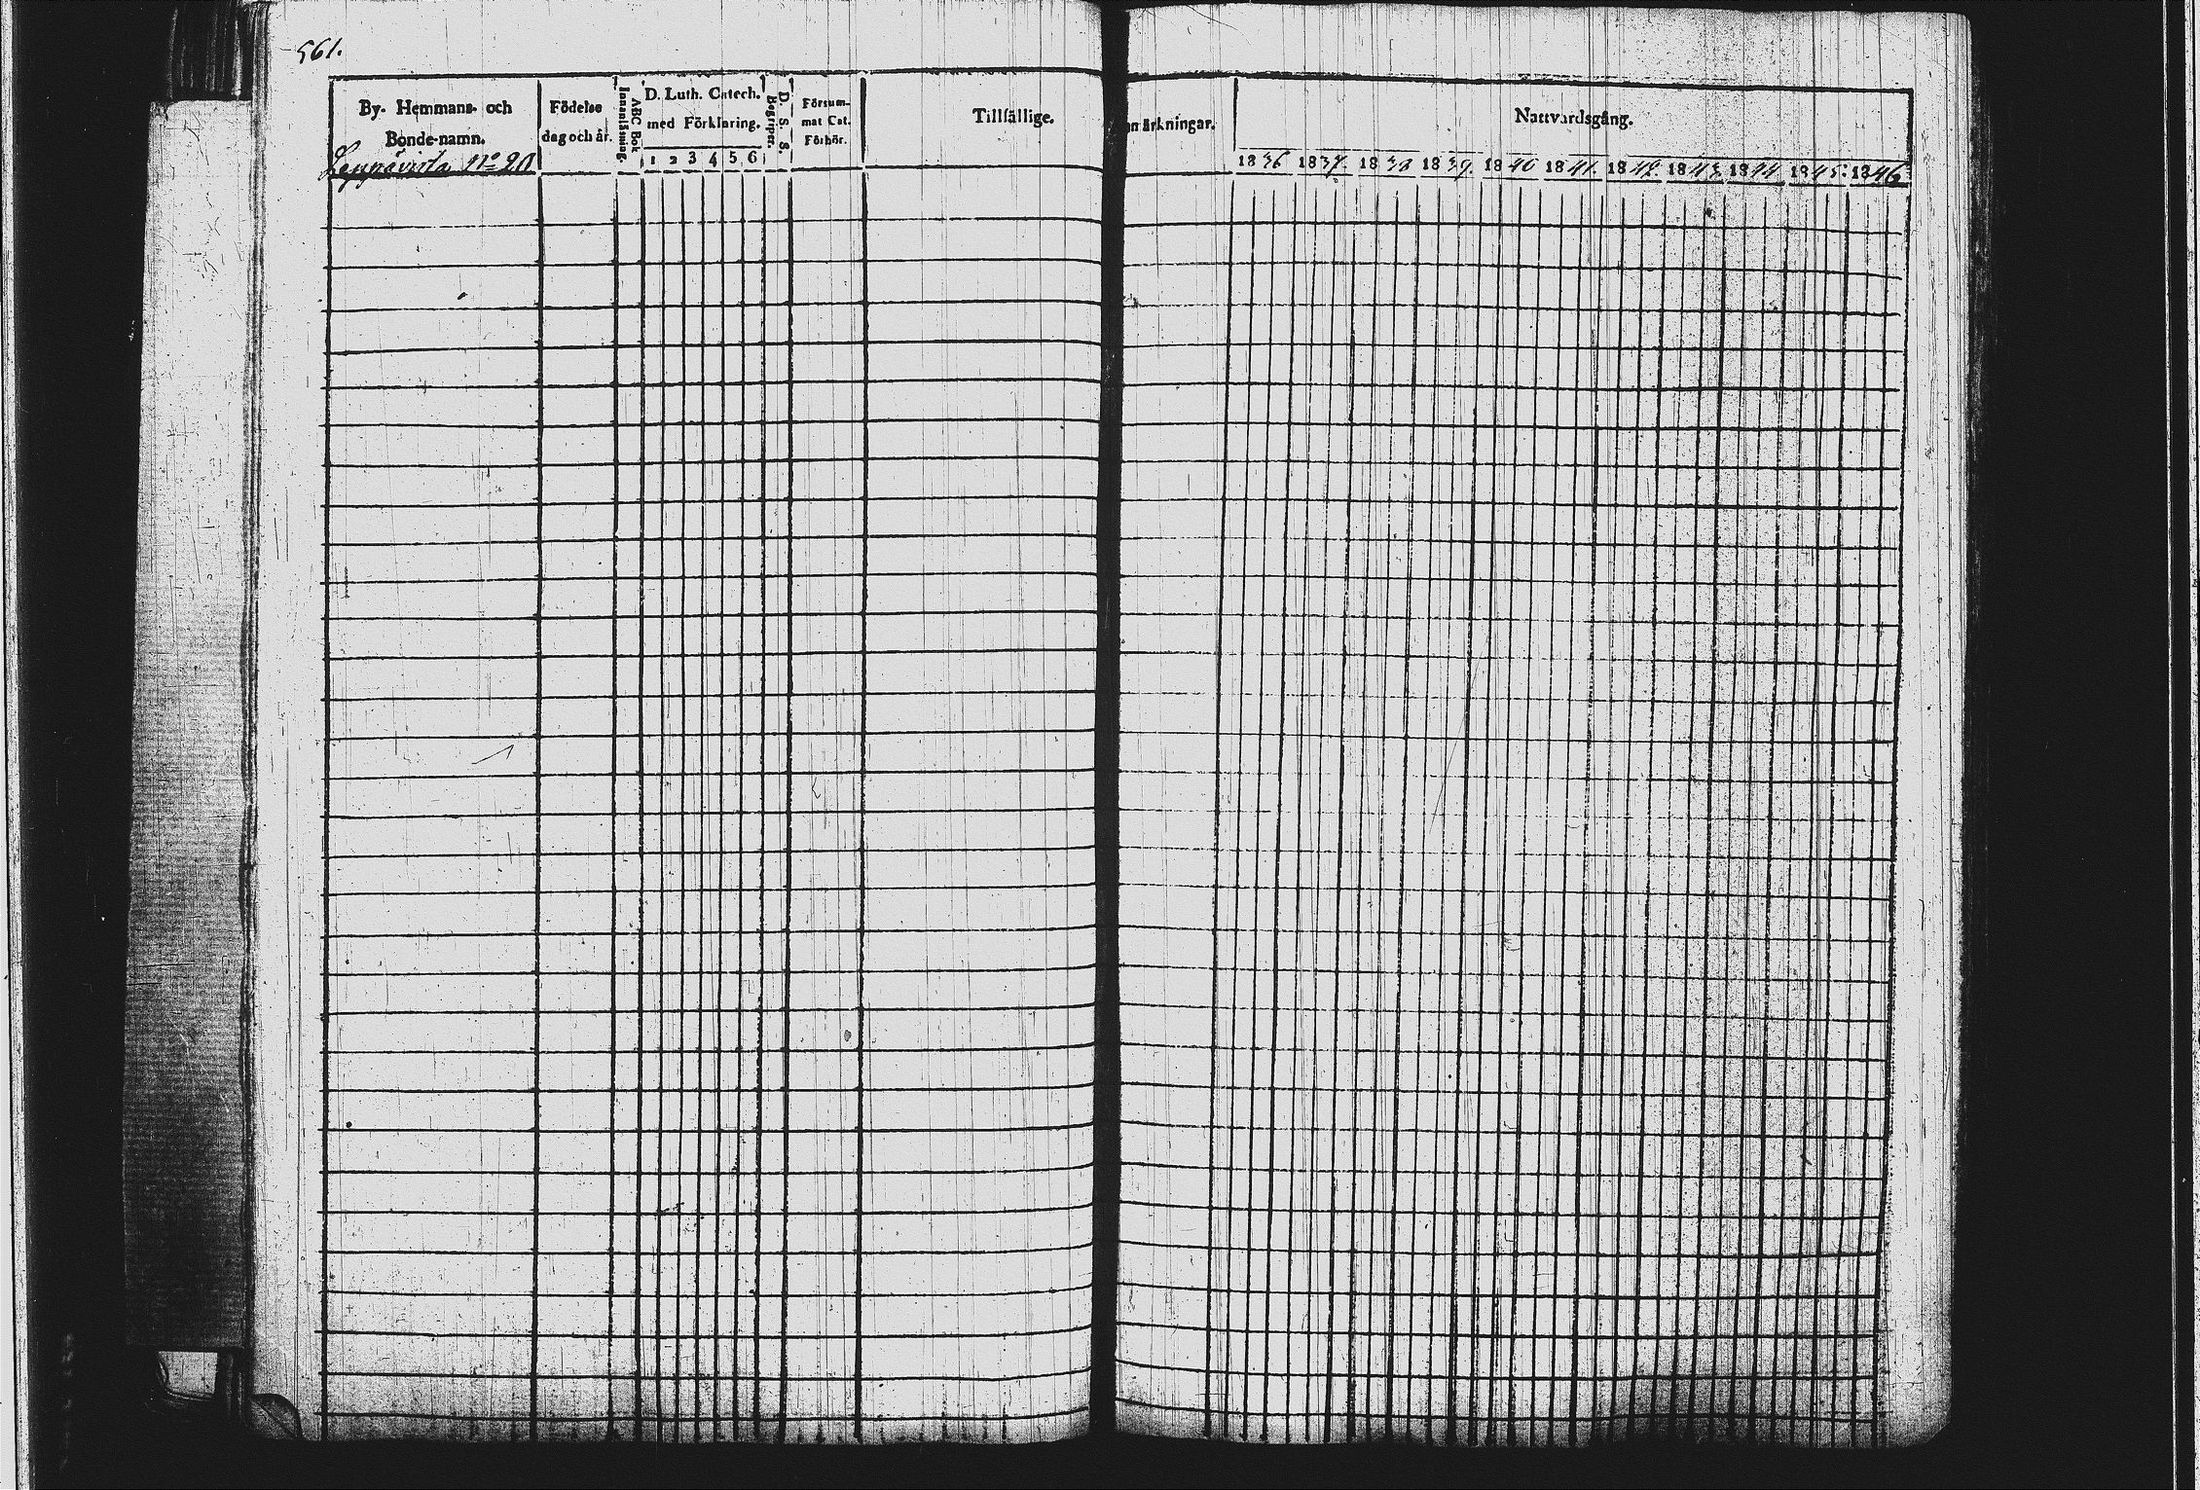 561.
By- Hemmans- och
Bonde-namn.
Leppävirta No 20
Födelse
dag och år.
ABC Bok
Innanläsning.
D. Luth. Catech.
med Förklaring.
1 2 3 4 5 6
D. S. S.
Begriper.
Försum-
mat Cat.
Förhör.
Tillfällige.
märkningar.
Nattvardsgång.
1836 1837. 1838 1839. 1840 1841. 1842. 1843. 1844 1845: 1846